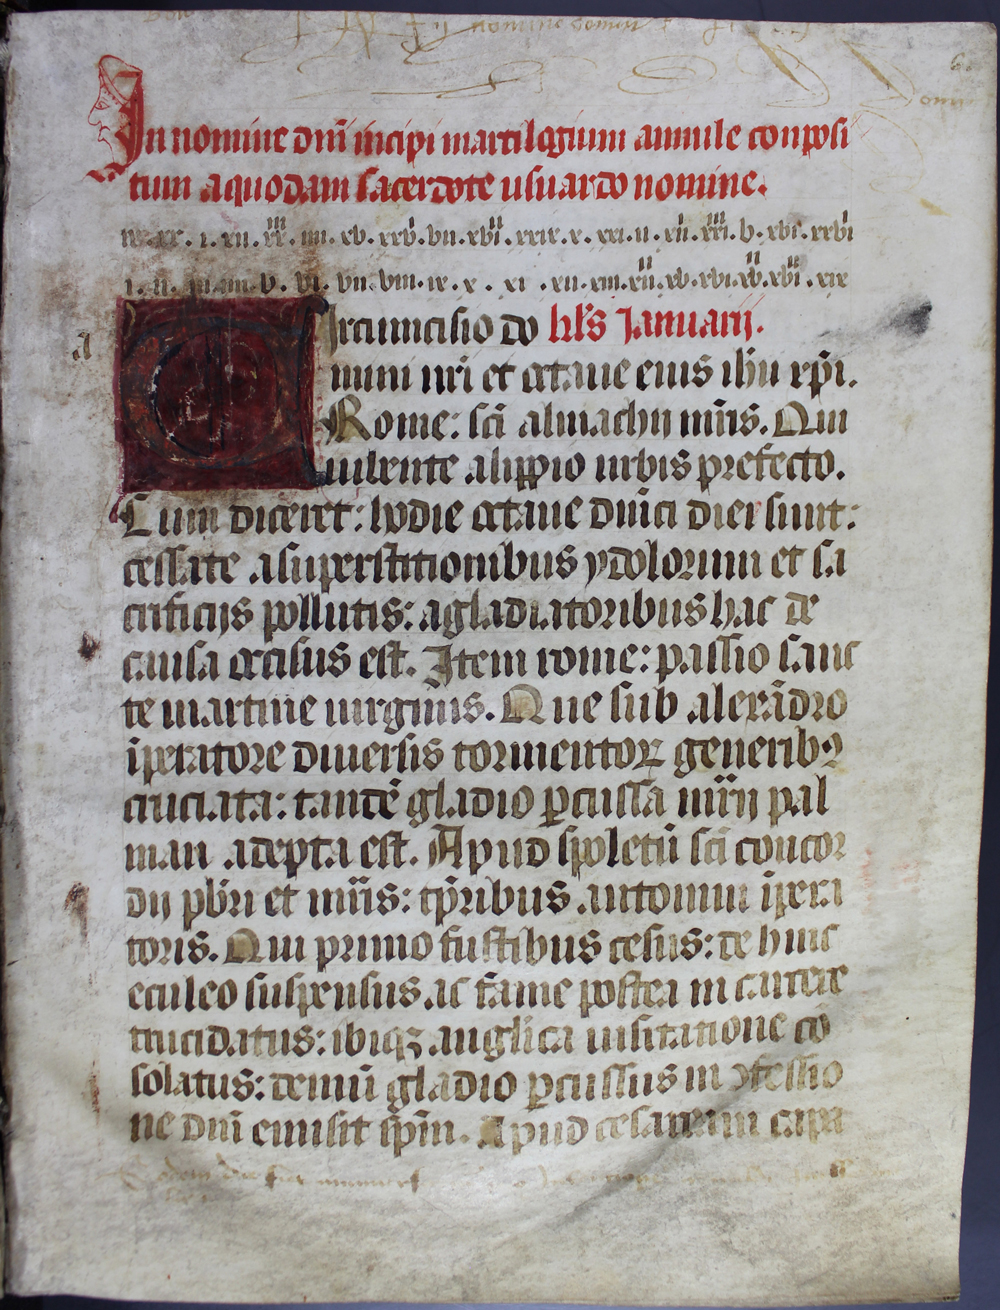 nomine domini
6.
In nomine dnī incipi martilogium annule conposi
tum aquodam sacerdote usuardo nomine.
ix. xx. i. xii. xxiii. iiii. xv. xxvi. vii. xviii. xxix. x. xxi. ii. xiii. xxiiii. v. xvi. xxvii
i. ii. iii. iiii. v. vi. vii. viii. ix. x. xi. xii. xiii. xiiii. xv. xvi. xvii. xviii. xix
A
Circumcisio do kl̄s Januarij.
mini nr̄i et octaue eius ih̄u xp̄i.
Rome: sc̄i almachij mr̄is. Qui
iubente alippio urbis prefecto.
Cum diceret: hodie octaue dn̄ici diei sunt:
cessate asuperstitionibus ydolorum et sa
crificijs pollutis: agladiatoribus hac de
causa occisus est. Item rome: passio sanc
te martine uirginis. Que sub alexādro
īperatore diuersis tormentoꝝ generibꝰ
cruciata: tandē gladio ꝑcussa mr̄ij pal
mam adepta est. Apud spoletū sc̄i concor
dij pb̄ri et mr̄is: tp̄ribus antonini īpera
toris. Qui primo fustibus cesus: dehinc
eculeo suspensus ac fame postea in carcere
trucidatus: ibiqꝫ anglica uisitatione cō
solatus: demū gladio ꝑcussus in ꝯfessio
ne dn̄i emisit sp̄m. Apud cesaream capa